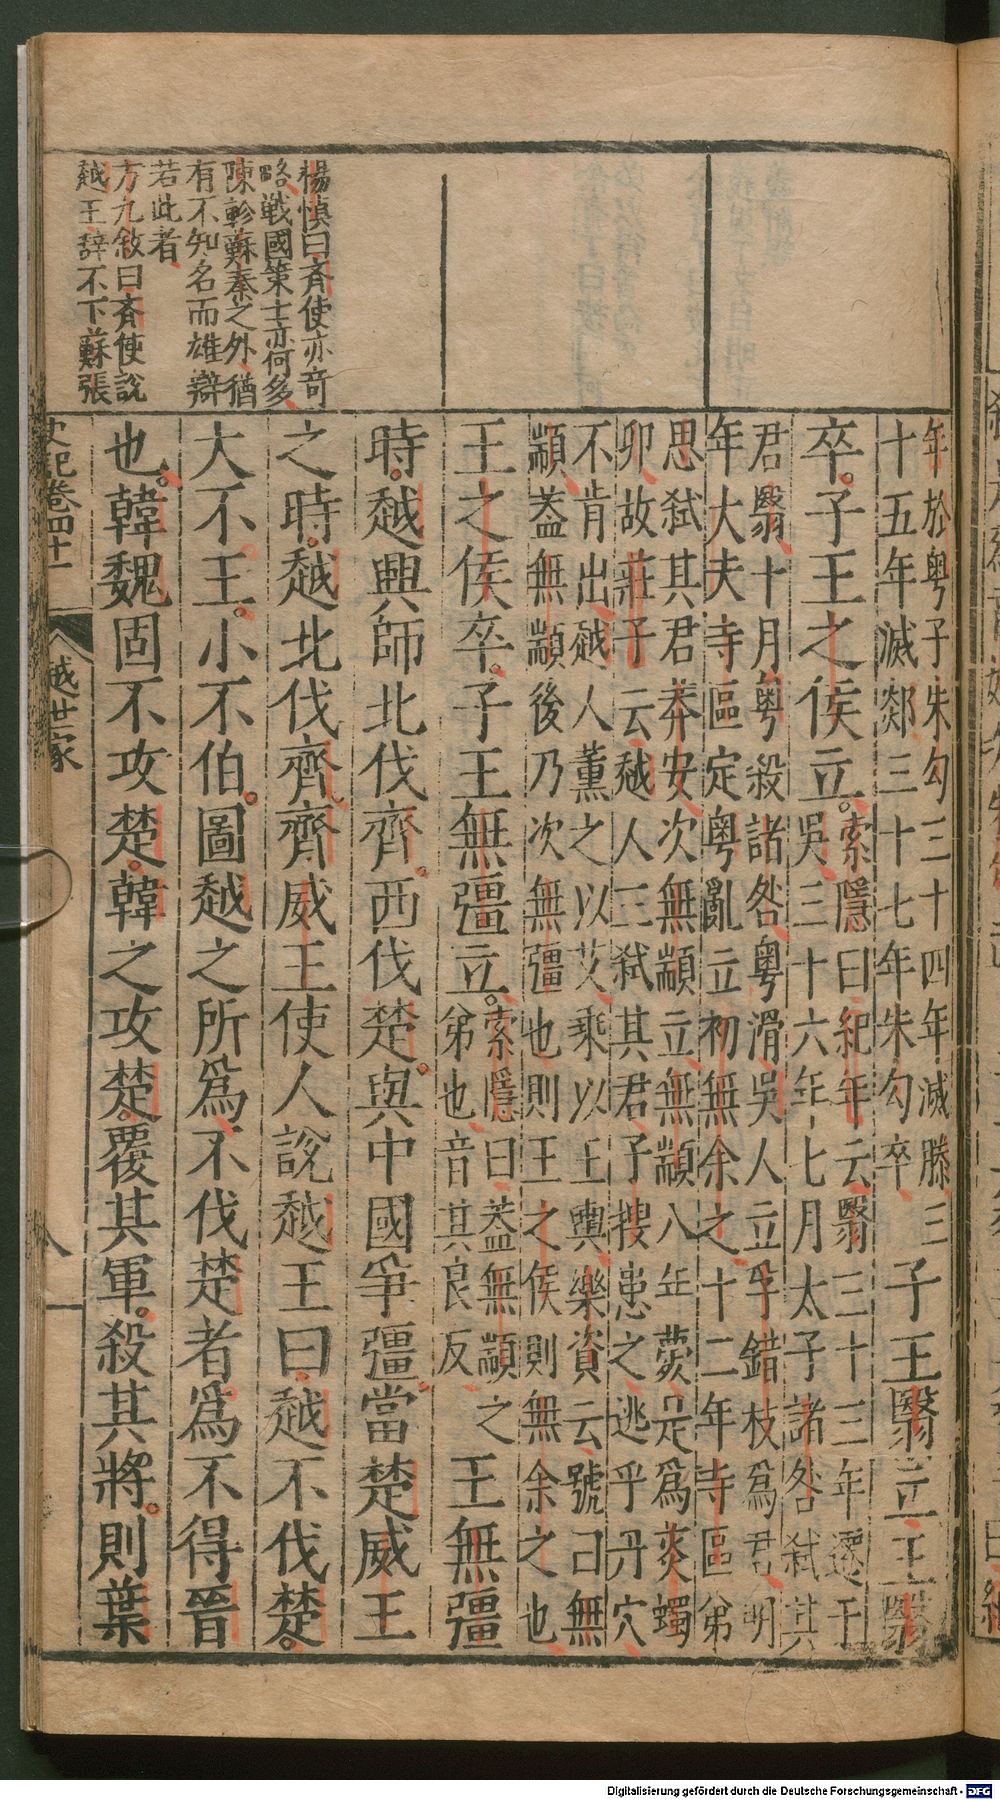 楊慎曰齊使亦竒
略戰國策士亦何多
陳軫蘇秦之外猶
有不知名而雄辯
若此者
方九敘曰齊使說
越王辭不下蘇張
年於粤子朱勾三十四年滅滕三
十五年滅郯三十七年朱勾卒
子王翳立王翳
卒。子王之侯立。
索隱曰紀年云翳三十三年遷于
吳三十六年七月太子諸咎弑其
君翳十月粤殺諸咎粤滑吳人立孚錯枝爲君明
年大夫寺區定粤亂立初無余之十二年寺區弟
思弑其君莽安次無顓立無顓八年薨是爲菼蠋
卯故莊子云越人三弑其君子搜患之逃乎丹穴
不肯出越人薰之以艾乘以王輿樂資云號曰無
顓蓋無顓後乃次無彊也則王之侯則無余之也
王之侯卒。子王無彊立。
索隱曰蓋無顓之
弟也音其良反
王無彊
時。越興師北伐齊。西伐楚。與中國爭彊當楚威王
之時。越北伐齊齊威王使人說越王曰越不伐楚。
大不王。小不伯。圖越之所爲不伐楚者爲不得晉
也。韓魏固不攻楚。韓之攻楚。覆其軍。殺其將。則葉
史記卷四十一
越世家
八
Digitalisierung gefördert durch die Deutsche Forschungsgemeinschaft - DFG